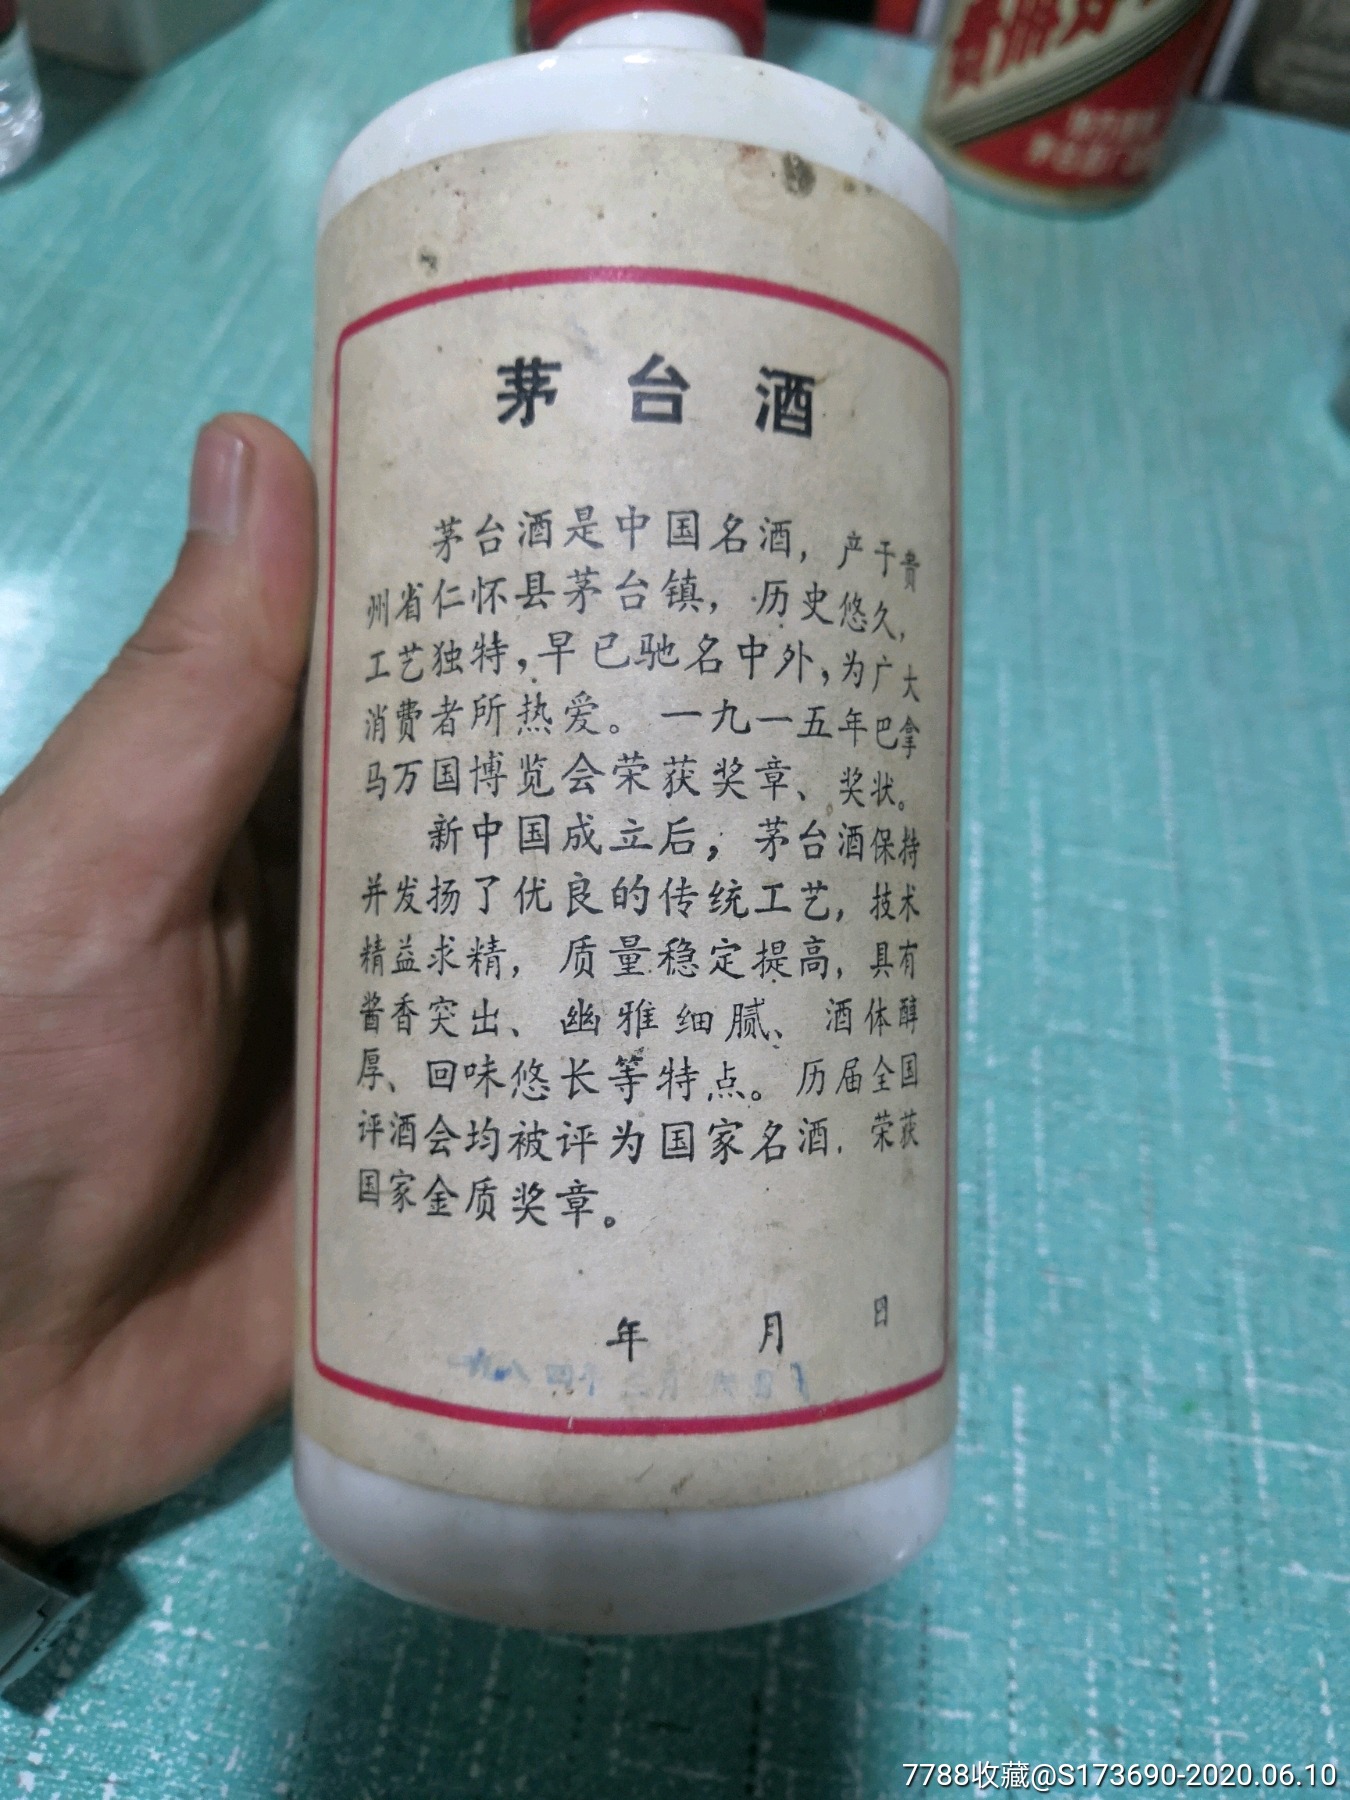 茅台酒
茅台酒是中国名酒，产于贵
州省仁怀县茅台镇，历史悠久，
工艺独特，早已驰名中外，为广大
消费者所热爱。一九一五年巴拿
马万国博览会荣获奖章、奖状。
新中国成立后，茅台酒保持
并发扬了优良的传统工艺，技术
精益求精，质量稳定提高，具有
酱香突出、幽雅细腻、酒体醇
厚、回味悠长等特点。历届全国
评酒会均被评为国家名酒．荣获
国家金质奖章。
年 月 日
7788收藏@S173690-2020.06.10